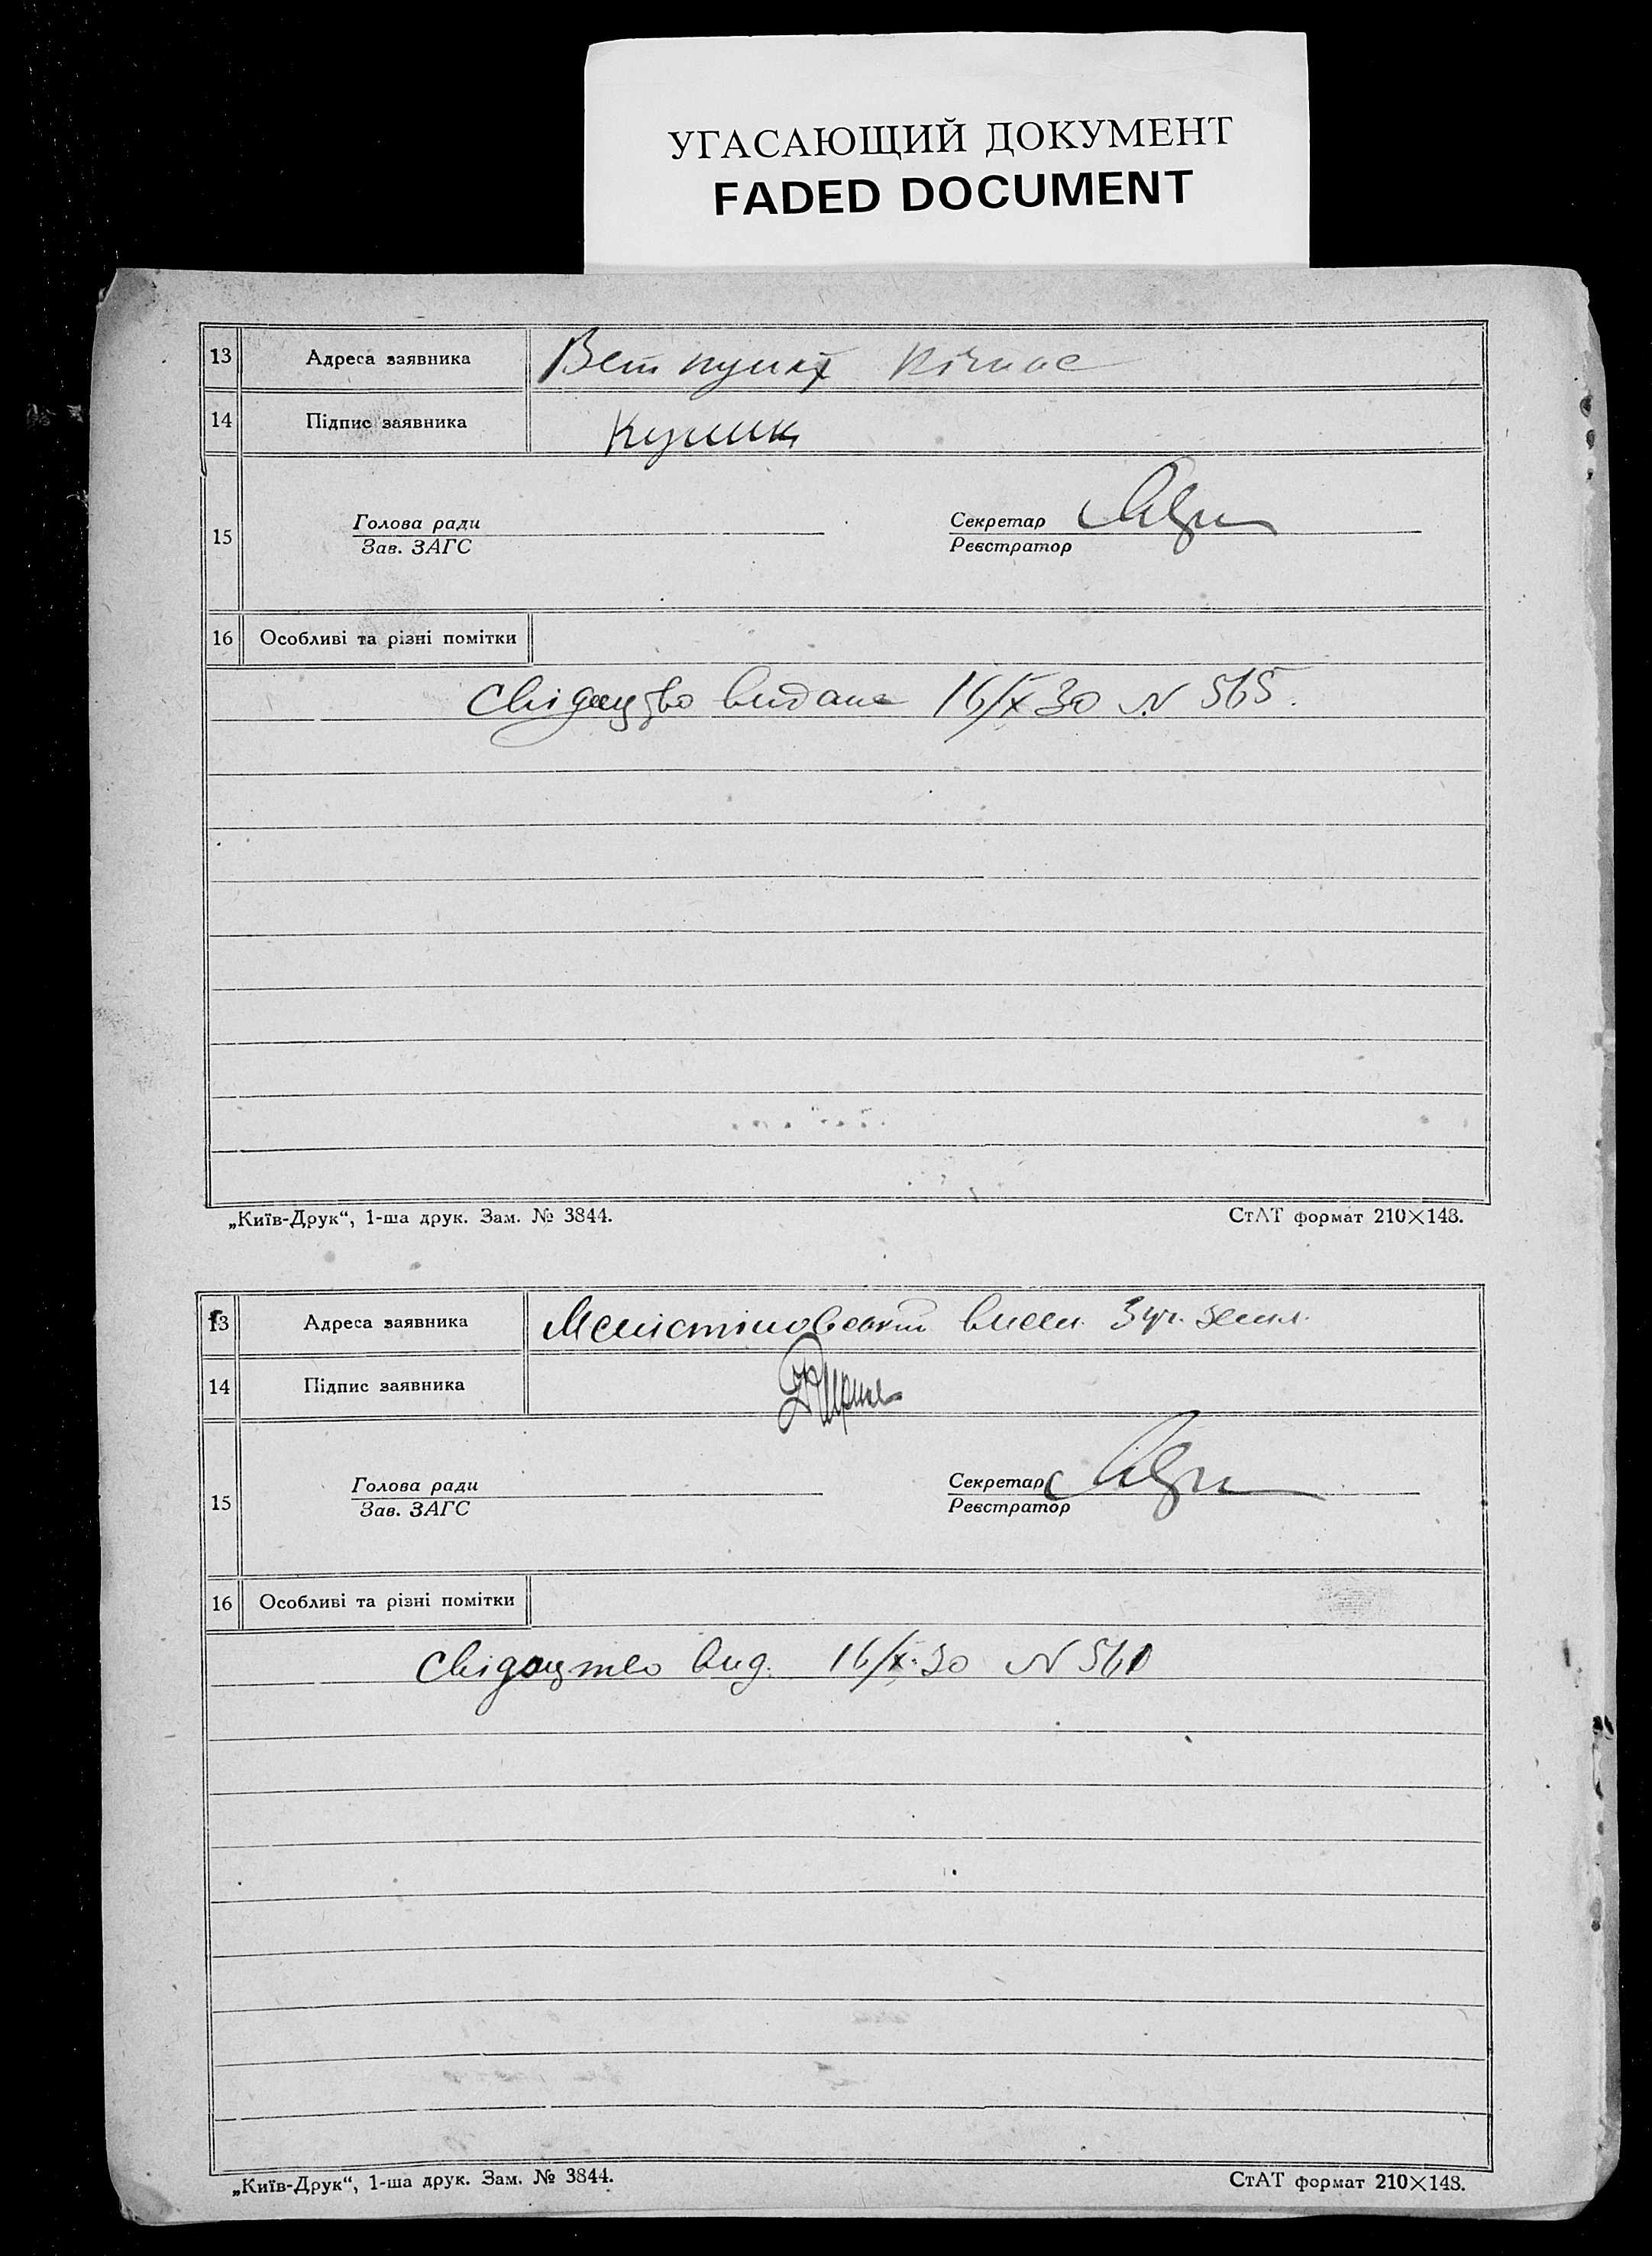 УГАСАЮЩИЙ ДОКУМЕНТ
FADED DOCUMENT
13 Адреса заявника Вет пункт Річное
14 Підпис заявника Кулик
Голова ради Секретар
15
Зав. ЗАГС Реєстратор
16 Особливі та різні помітки
Свідоцтво видане 16/X 30 N 565.
„Київ-Друк“, 1-ша друк. Зам. № 3844. СтАТ формат 210×148.
13 Адреса заявника
14 Підпис заявника
Голова ради Секретар
15
Зав. ЗАГС Реєстратор
16 Особливі та різні помітки
Свідоцтво вид. 16/X.30 N 560
„Київ-Друк“, 1-ша друк. Зам. № 3844. СтАТ формат 210×148.